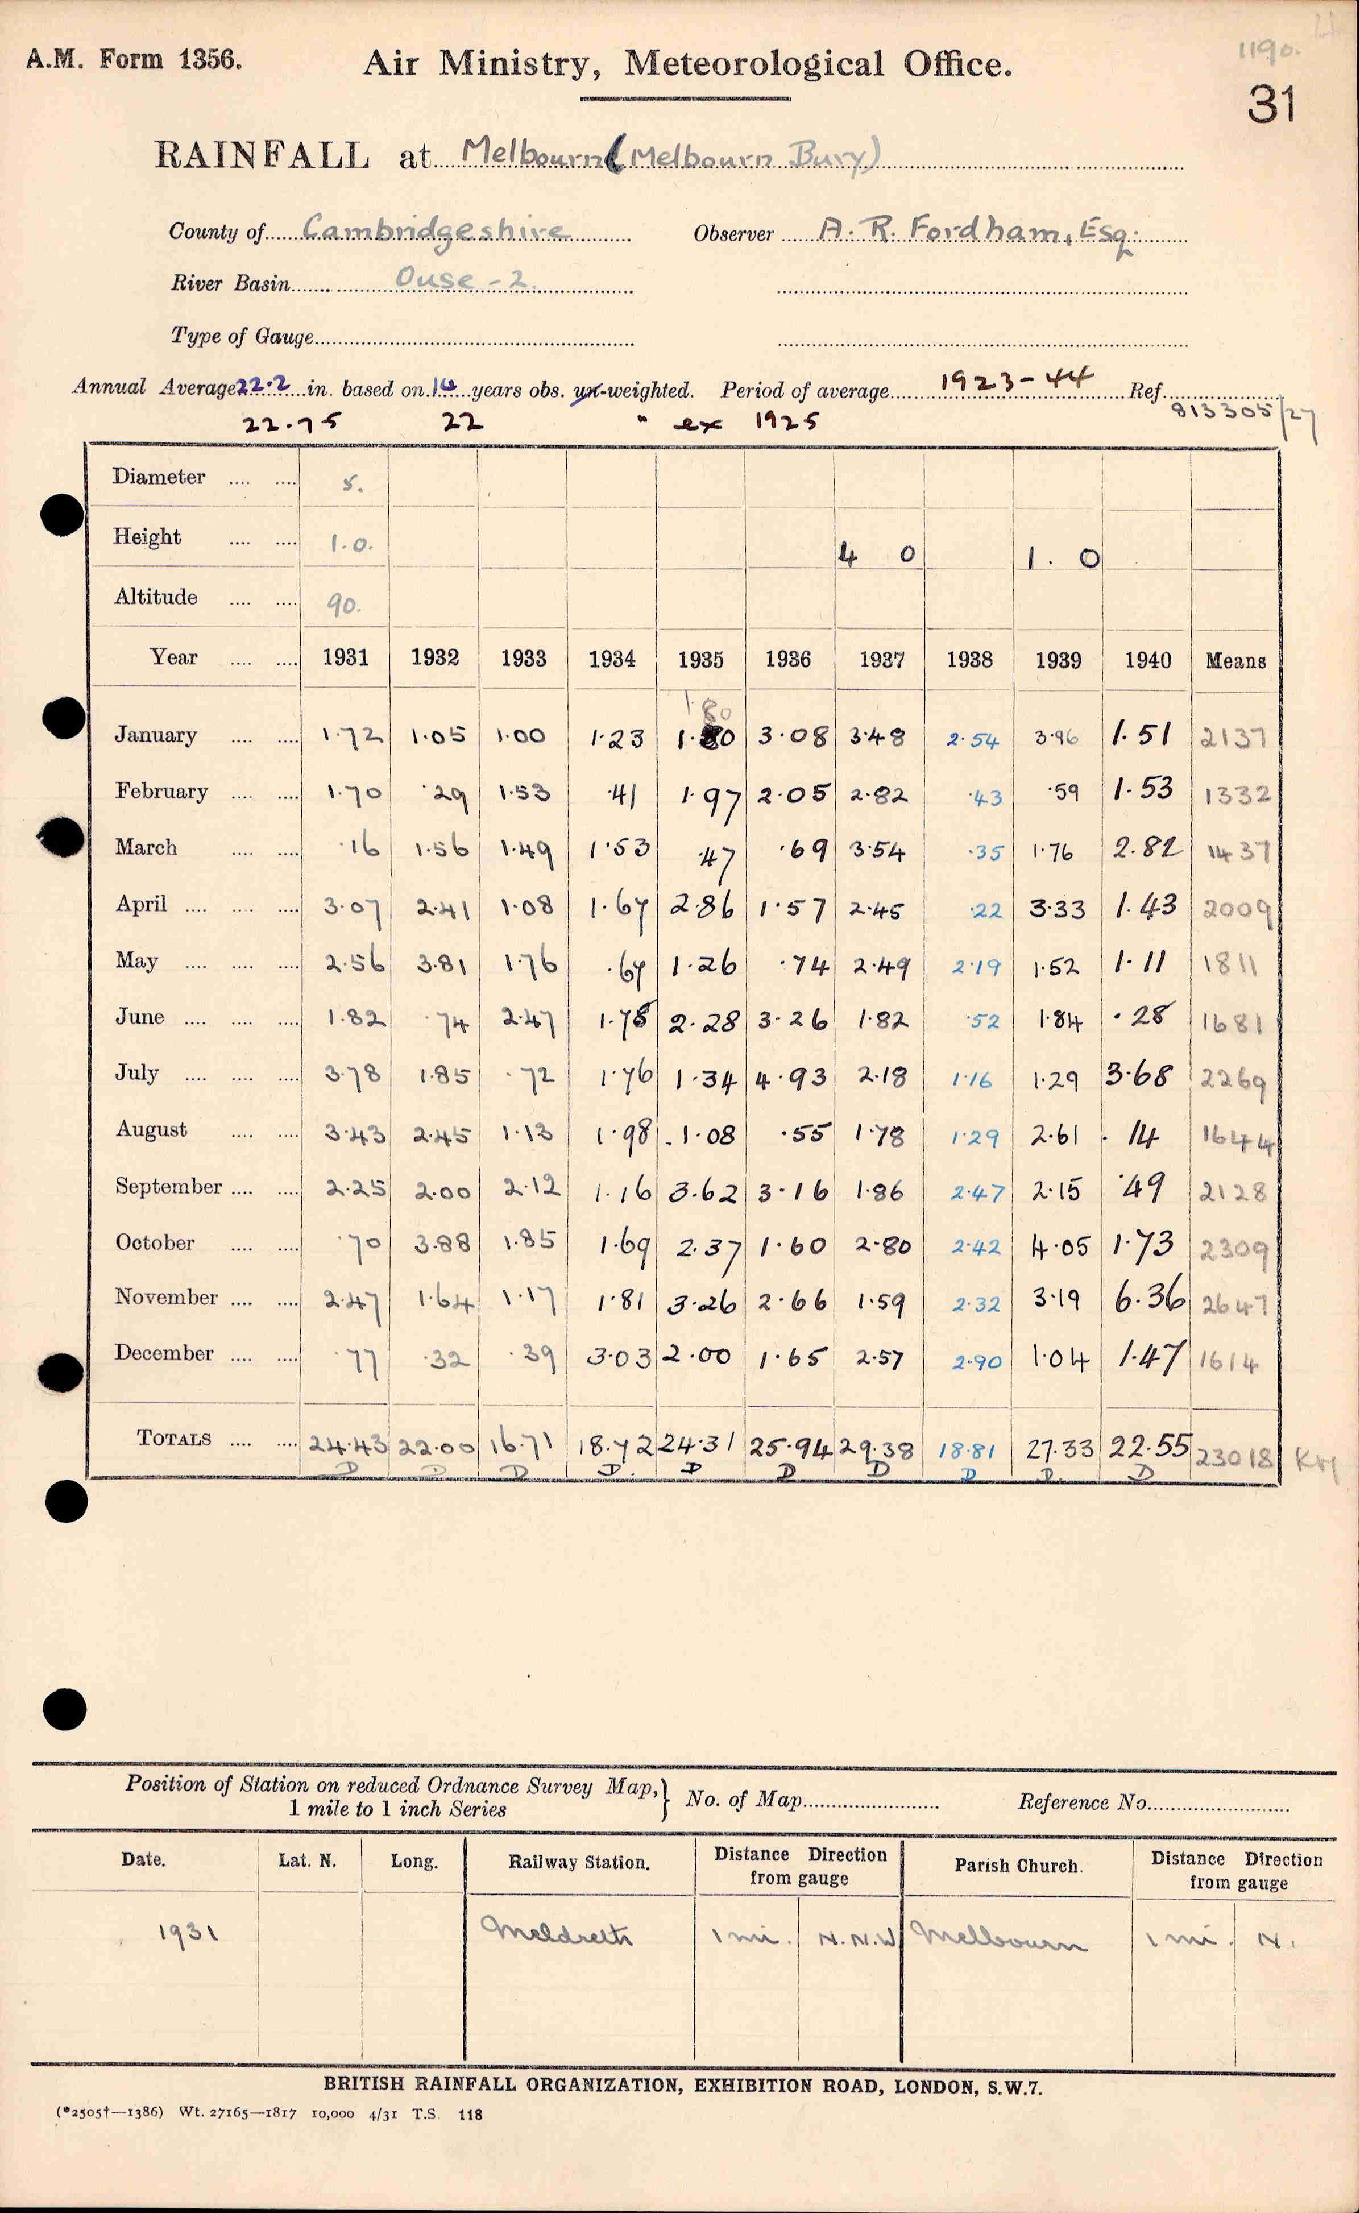 1190.
A.M. Form 1356. Air Ministry, Meteorological Office.
31
RAINFALL at Melbourn (Melbourn Bury)
County of Cambridgeshire Observer A. R. Fordham, Esq.
River Basin Ouse - 2.
Type of Gauge
Annual Average 22.2 in. based on 14 years obs. un-weighted. Period of average 1923-44 Ref. 813305/27
22.75 22 " ex 1925
Diameter .... .... 5.
Height .... .... 1.0. 4 0 1. 0
Altitude .... .... 90.
Year .... .... 1931 1932 1933 1934 1935 1936 1937 1938 1939 1940 Means
1.80
January .... .... 1.72 1.05 1.00 1.23 1.80 3.08 3.48 2.54 3.96 1.51 2137
February .... .... 1.70 .29 1.53 .41 1.97 2.05 2.82 .43 .59 1.53 1332
March .... .... .16 1.56 1.49 1.53 .47 .69 3.54 .35 1.76 2.82 1437
April .... .... .... 3.07 2.41 1.08 1.67 2.86 1.57 2.45 .22 3.33 1.43 2009
May .... .... .... 2.56 3.81 1.76 .67 1.26 .74 2.49 2.19 1.52 1.11 1811
June .... .... .... 1.82 .74 2.47 1.78 2.28 3.26 1.82 .52 1.84 .28 1681
July .... .... .... 3.78 1.85 .72 1.76 1.34 4.93 2.18 1.16 1.29 3.68 2269
August .... .... 3.43 2.45 1.13 1.98 1.08 .55 1.78 1.29 2.61 .14 1644
September .... .... 2.25 2.00 2.12 1.16 3.62 3.16 1.86 2.47 2.15 .49 2128
October .... .... .70 3.88 1.85 1.69 2.37 1.60 2.80 2.42 4.05 1.73 2309
November .... .... 2.47 1.64 1.17 1.81 3.26 2.66 1.59 2.32 3.19 6.36 2647
December .... .... .77 .32 .39 3.03 2.00 1.65 2.57 2.90 1.04 1.47 1614
TOTALS .... .... 24.43 22.00 16.71 18.72 24.31 25.94 29.38 18.81 27.33 22.55 23018
D D D D. D D D D D. D
Position of Station on reduced Ordnance Survey Map, } No. of Map Reference No.
1 mile to 1 inch Series
Date. Lat. N. Long. Railway Station. Distance Direction from gauge Parish Church. Distance Direction from gauge
1931 Meldreth 1 mi. N.N.W Melbourn 1 mi. N.
BRITISH RAINFALL ORGANIZATION, EXHIBITION ROAD, LONDON, S.W.7.
(*2505†—1386) Wt. 27165—1817 10,000 4/31 T.S. 118